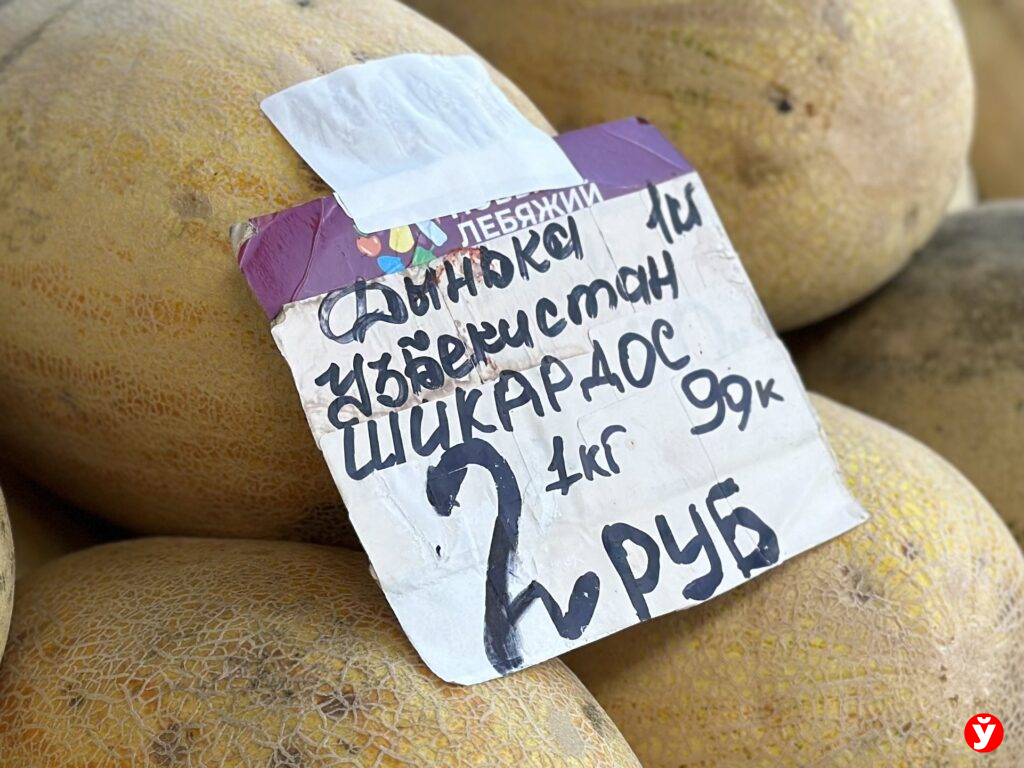 ЛЕБЯЖИЙ
Дынька 1кг
Узбекистан
ШИКАРДОС
2 РУБ 99к
1кг
ў